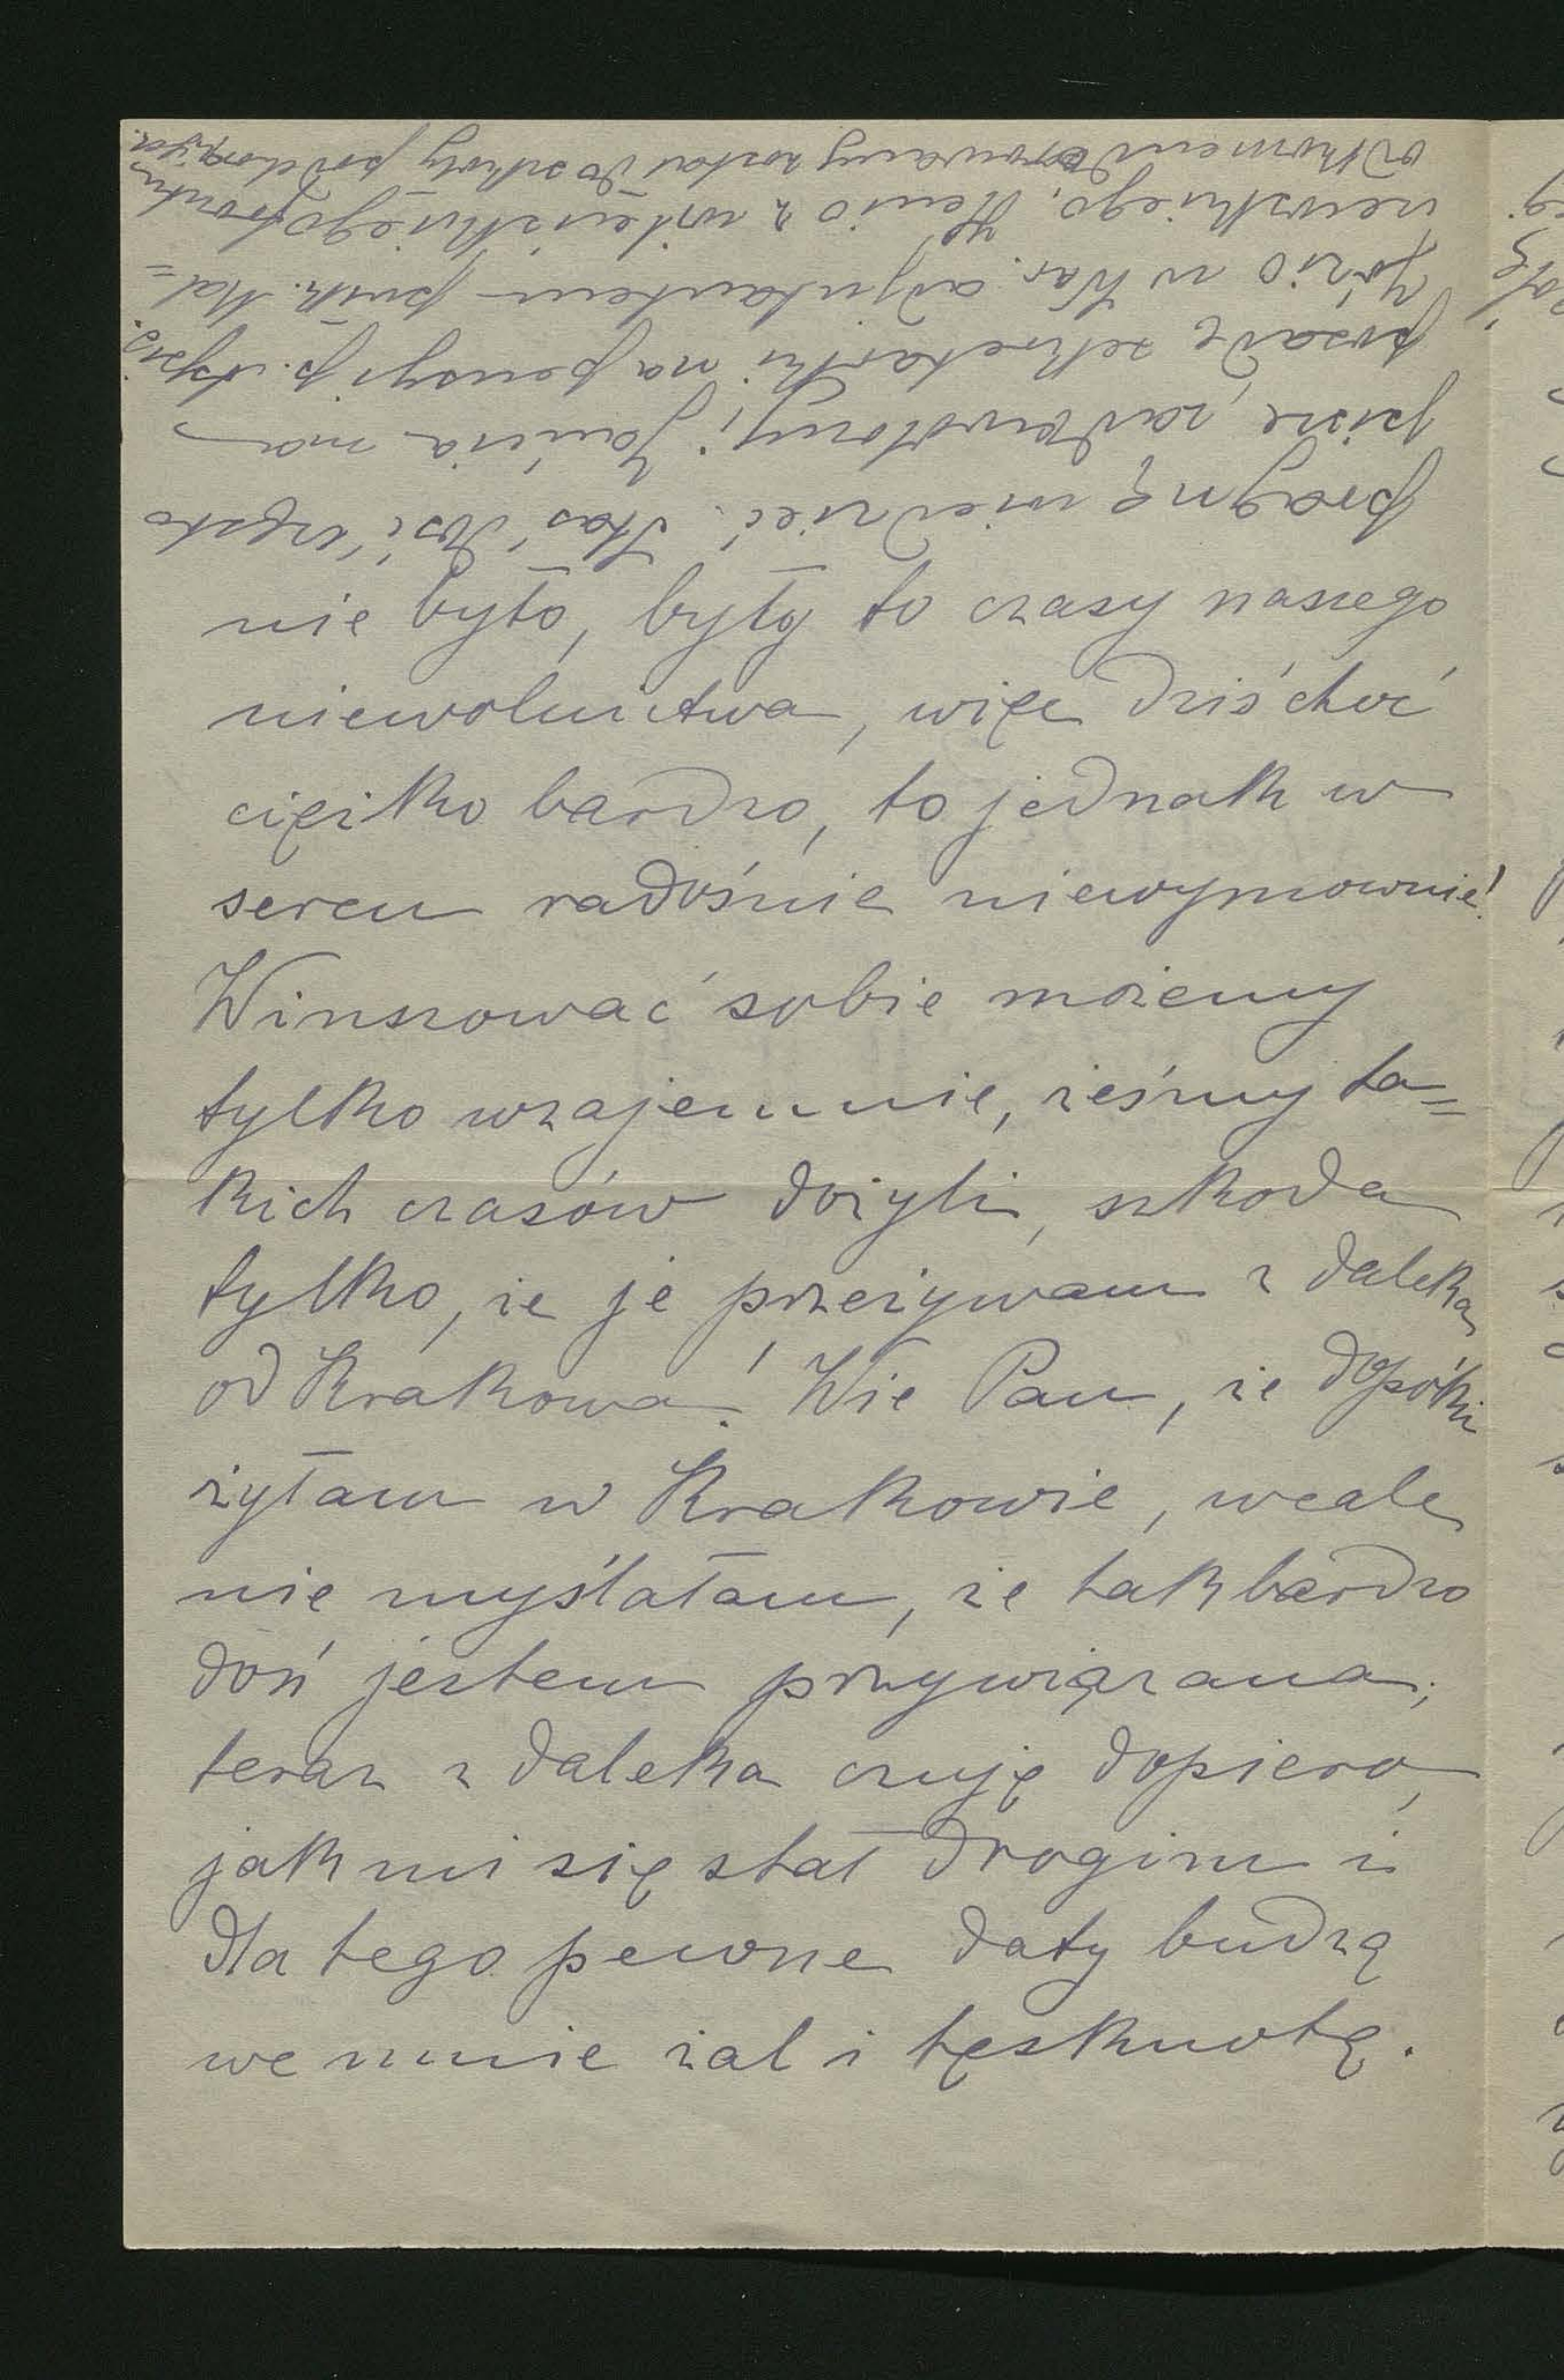 nie było, były to czasy naszego
niewolnictwa, więc dziś choć
ciężko bardzo, to jednak w
sercu radośnie niewymownie!
Winszować sobie możemy
tylko wzajemnie, żeśmy ta=
kich czasów dożyli, szkoda
tylko, że je przeżywam z daleka
od Krakowa! Wie Pan, że dopóki
żyłam w Krakowie, wcale
nie myślałam, że tak bardzo
doń jestem przywiązana;
teraz z daleka czuję dopiero,
jak mi się stał drogim i
dla tego pewne daty budzą
we mnie żal i tęsknotę.
pragnę wiedzieć. Staś dość często
pisze, zadowolony; Jańcia ma
posadę sekretarki na pensyi p.
Józio w War. adjutantem pułk. Kal=
newskiego, Henio z wileńskiego frontu
odkomenderowany został do szkoły podchorążych.